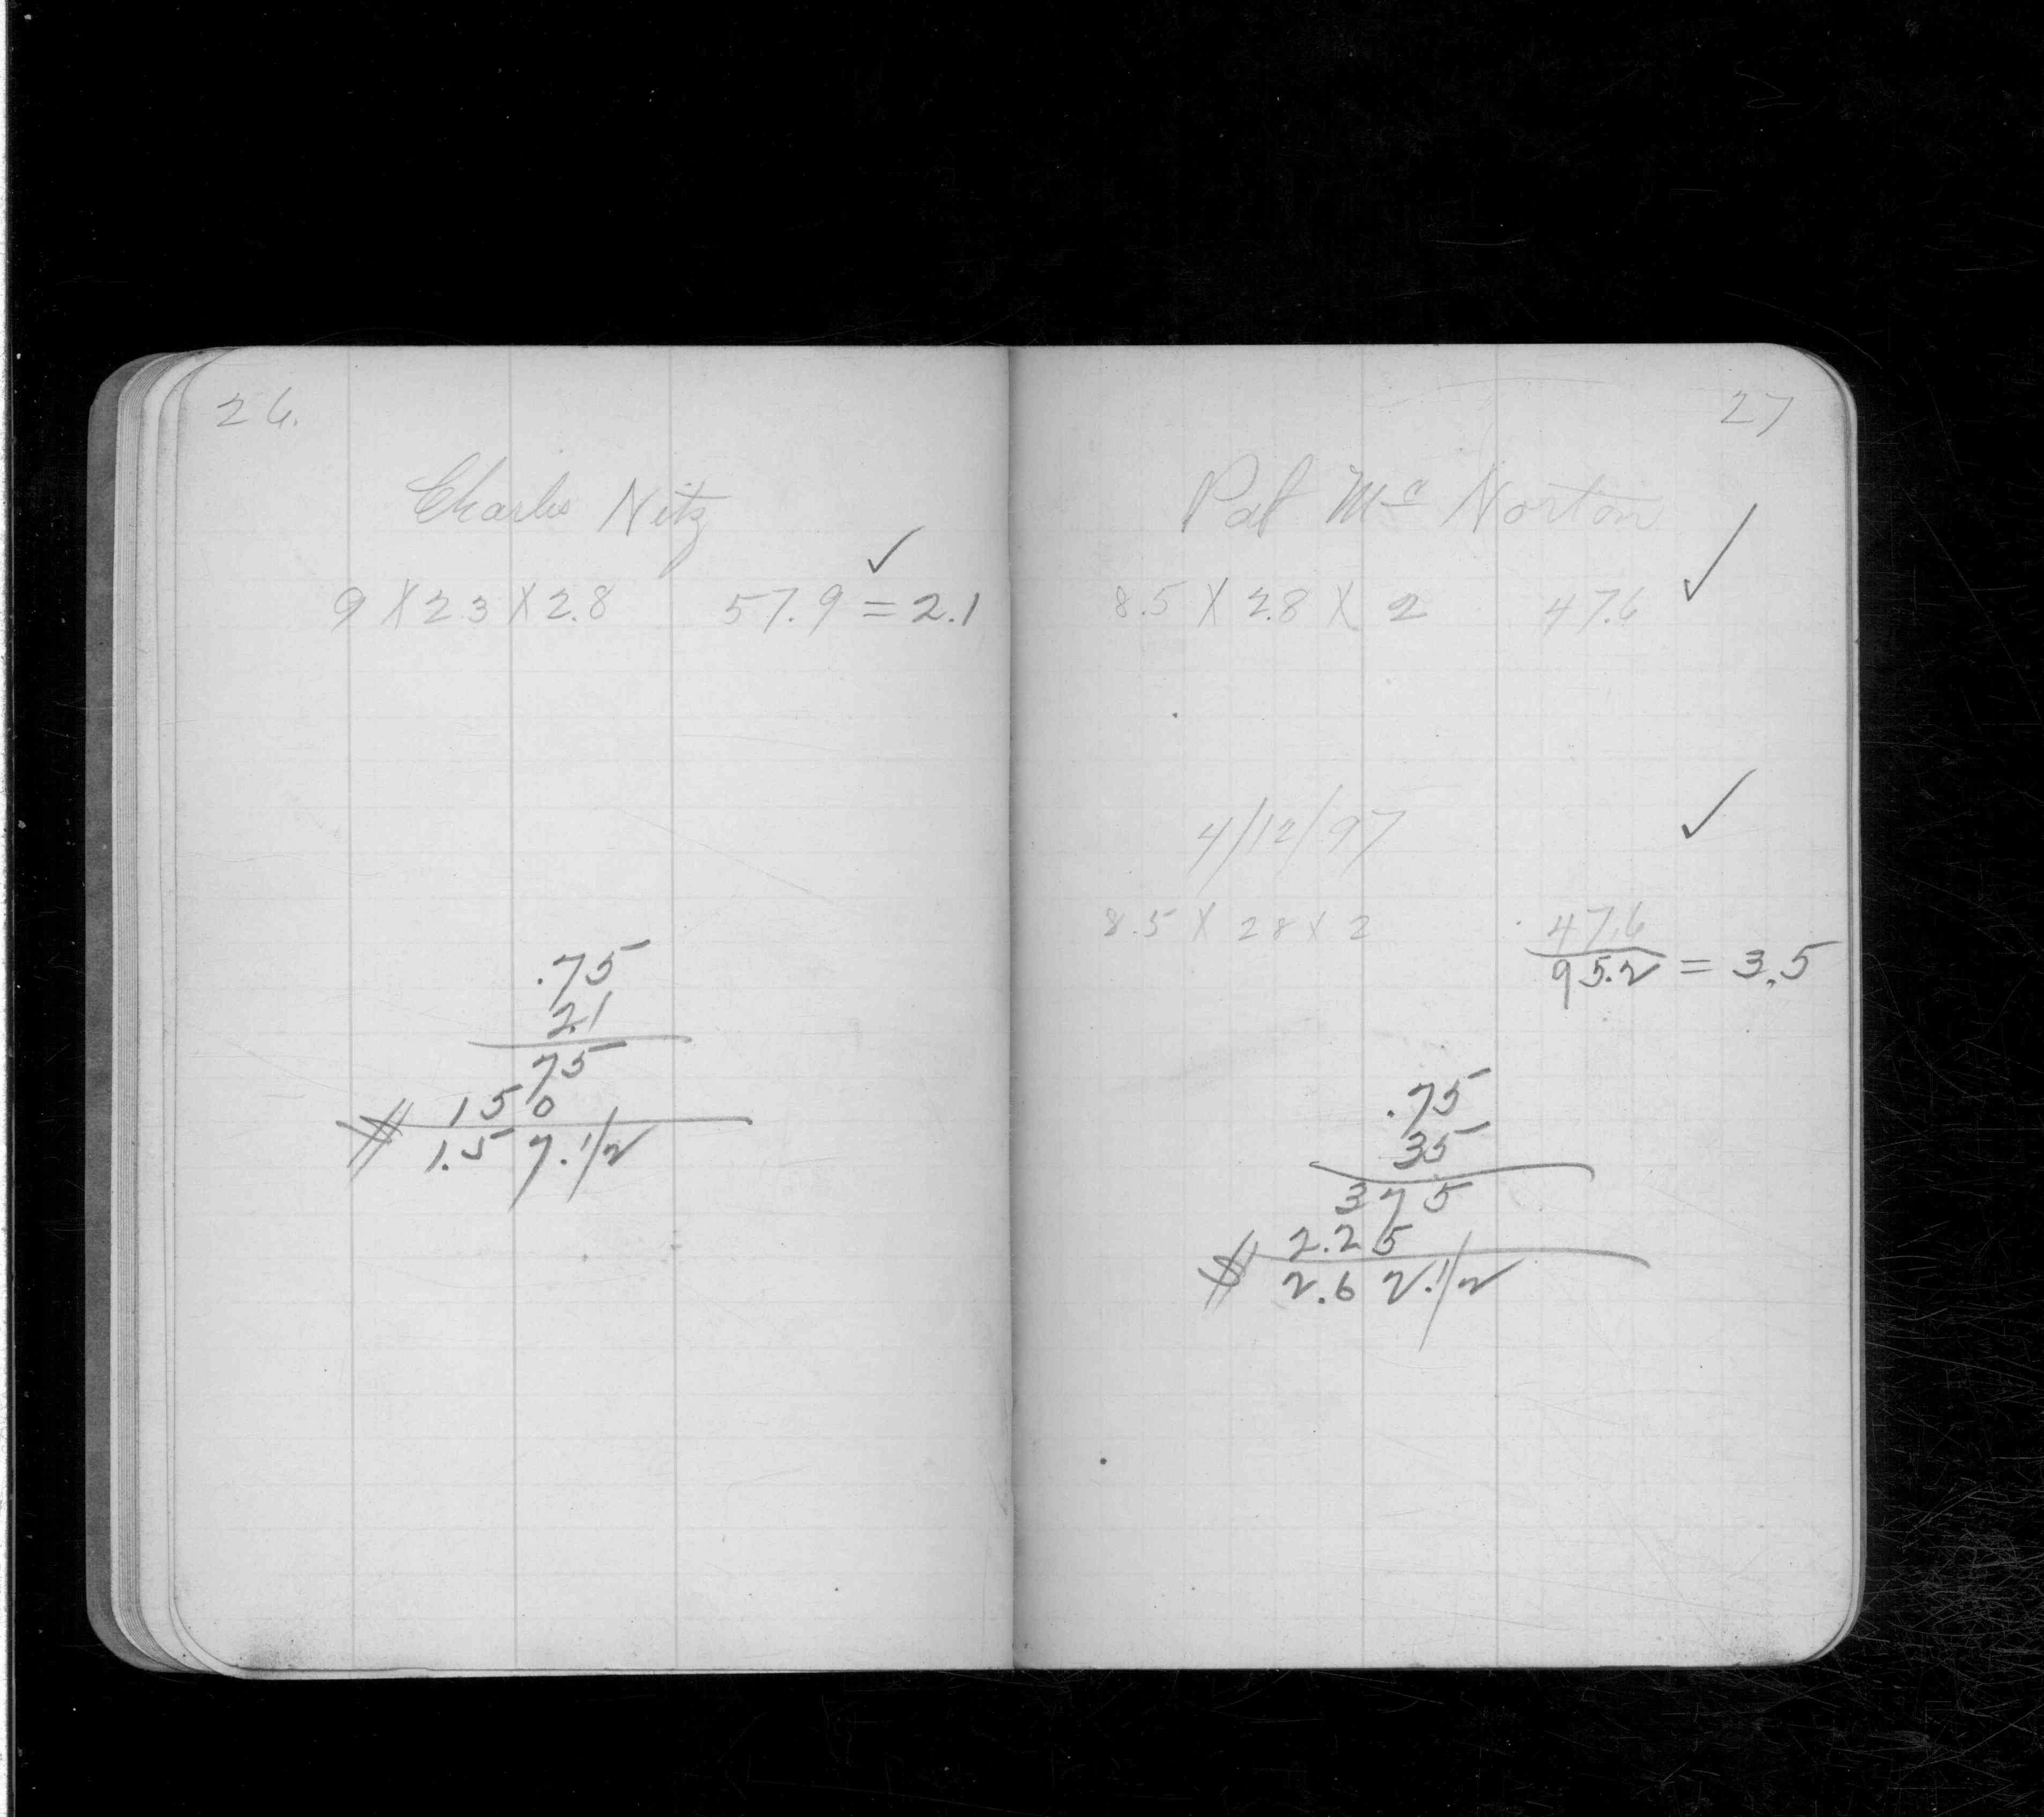 26.
Charles Nitz
✓
9 X 2.3 X 2.8 57.9 = 2.1
.75
2.1
75
150
$ 1.57.1/2
27
Pat Mc Norton ✓
8.5 X 2.8 X 2 47.6
4/12/97 ✓
8.5 X 28 X 2 47.6
95.2 = 3.5
.75
35
375
2.25
$ 2.62.1/2